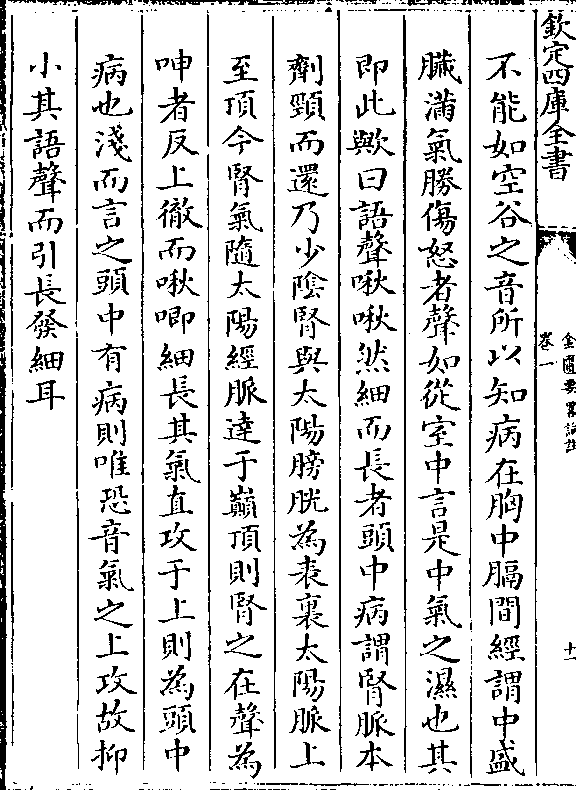 欽定四庫全書
金匱要畧論註
卷一
十一
不能如空谷之音所以知病在胸中膈間經謂中盛
臟滿氣勝傷恐者聲如從室中言是中氣之濕也其
即此歟曰語聲啾啾然細而長者頭中病謂腎脈本
劑頸而還乃少陰腎與太陽膀胱為表裏太陽脈上
至頂今腎氣隨太陽經脈達于巔頂則腎之在聲為
呻者反上徹而啾唧細長其氣直攻于上則為頭中
病也淺而言之頭中有病則唯恐音氣之上攻故抑
小其語聲而引長發細耳